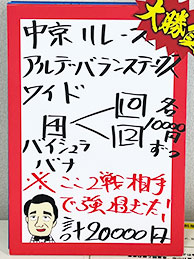 大勝
中京11レース
アルデバランステークス
ワイド
⑩ 各
10000円
⑫ ずつ
バイシュラ
バナ
※ここ2戦相手
で強すぎた!
計20000円